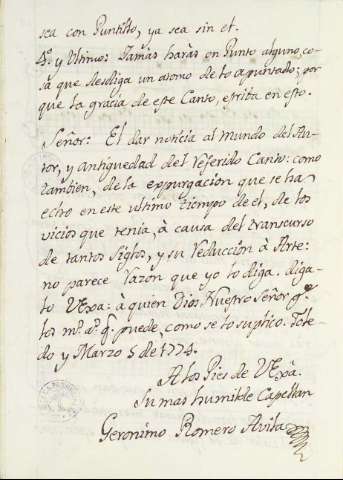 sea con Puntillo, ya sea sin el.
4.º y Ultimo: Jamàs haràs en Punto alguno, co-
sa que desdiga un asomo de lo apuntado; por
que la gracia de este Canto, estriba en esto.
Señor: El dar noticia al Mundo del Au-
tor, y antiguedad del Referido Canto: como
tambien, de la expurgacion que se ha
echo en este ultimo tiempo de el, de los
vicios que tenia, à causa del transcurso
de tantos Siglos, y su Reducción à Arte:
no parece Razòn que yo lo diga. diga-
lo VExa: à quien Dios Nuestro Señor g.e
los m.s a.s q.e puede, como se lo suplico. Tole-
do y Marzo 5 de 1774.
A los Pies de VExâ.
Su mas humilde Capellan
Geronimo Romero Avila